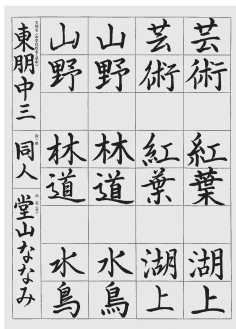 芸術 紅葉 湖上
芸術 紅葉 湖上
山野 林道 水鳥
山野 林道 水鳥
東朋中三 同人 堂山ななみ